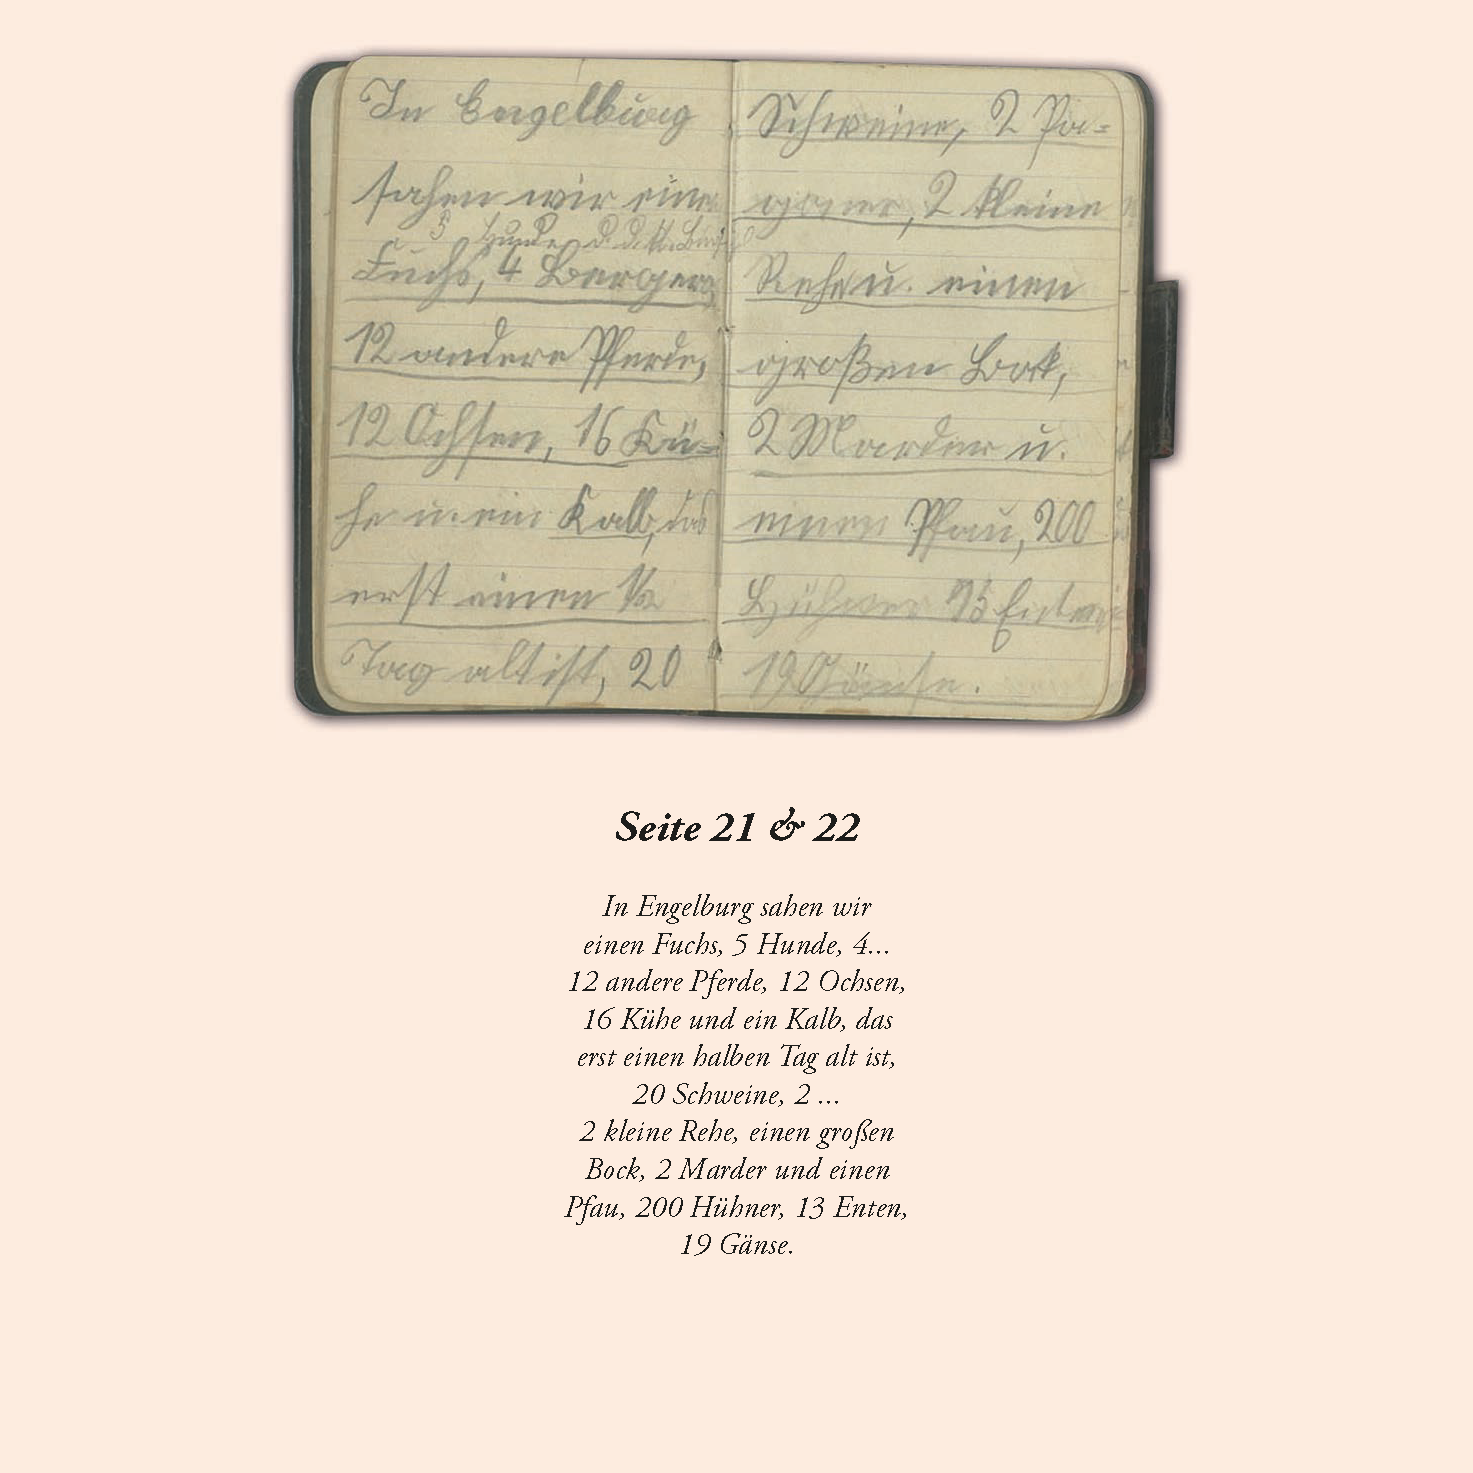 In Engelburg
sahen wir einen
5 Hunde,
Fuchs, 4
12 andere Pferde,
12 Ochsen, 16 Kü=
he u. ein Kalb, das
erst einen ½
Tag alt ist, 20
Schweine, 2
2 kleine
Rehe u. einen
großen Bock,
2 Marder u.
einen Pfau, 200
Hühner 13 Enten
19 Gänse.
Seite 21 & 22
In Engelburg sahen wir
einen Fuchs, 5 Hunde, 4...
12 andere Pferde, 12 Ochsen,
16 Kühe und ein Kalb, das
erst einen halben Tag alt ist,
20 Schweine, 2 ...
2 kleine Rehe, einen großen
Bock, 2 Marder und einen
Pfau, 200 Hühner, 13 Enten,
19 Gänse.